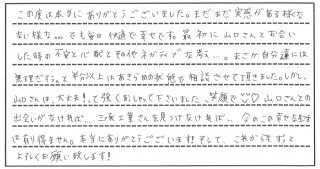 この度は本当にありがとうございました。まだまだ実感がある様な
ない様な…でも毎日快適で幸せです。最初に山口さんとお会い
した時の不安と心配とその他ネガティブな考え…。まさか自分達には
無理だろう。と半分以上はあきらめの状態で相談させて頂きました。しかし、
山口さんは、大丈夫!って強くおしゃって下さいました、笑顔で 山口さんとの
出会いがなければ…三友工業さんを見つけなければ…今のこの幸せな生活
は有り得ません。本当にありがとうございます!そして、これからもずっと
よろしくお願い致します!